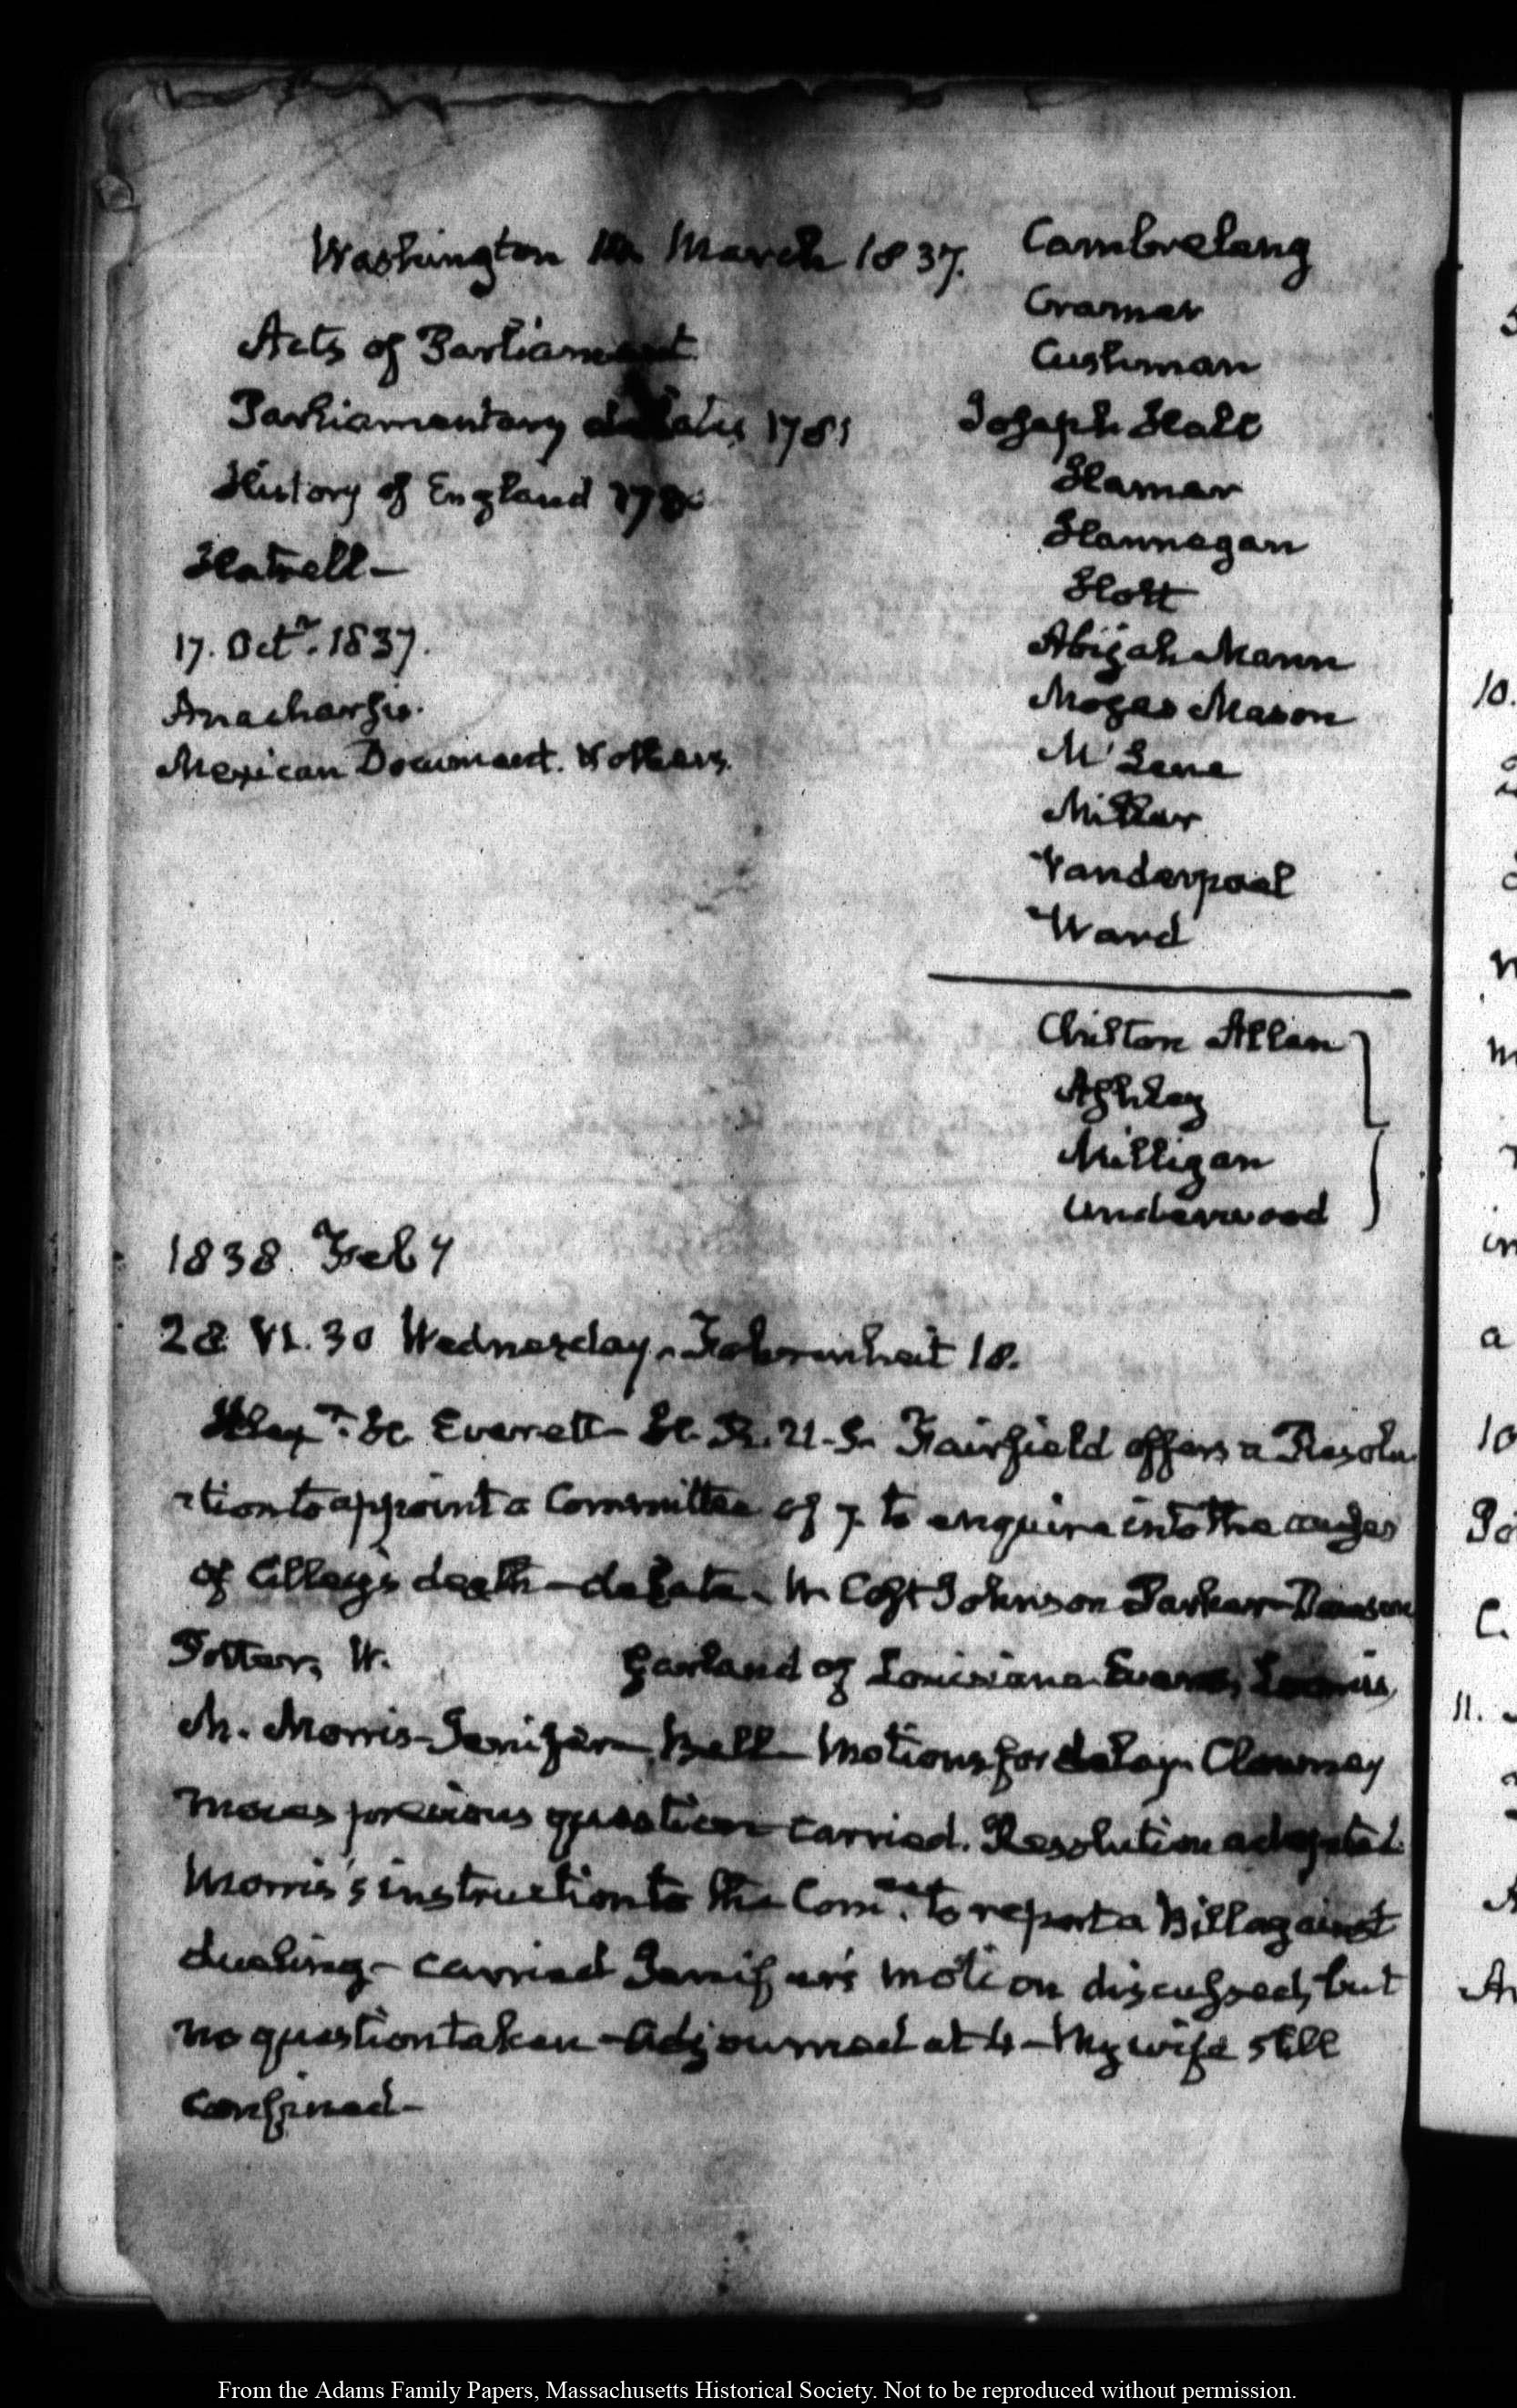 Washington March 1837.
Acts of Parliament
Parliamentary debates 1781
History of England
Hatsell-
17. Octr. 1837.
Anacharsis.
Mexican Document. & others.
Cambreleng
Cramer
Cushman
Joseph Hall
Hamer
Hannegan
Holt
Abijah Mann
Moses Mason
McLene
Miller
Vanderpoel
Ward
Chilton Allan
Ashley
Milligan
Underwood
1838. Feb y
28 VI. 30 Wednesday. Fahrenheit 18.
Alexr. H. Everett- H. R. U. S. Fairfield offers a Resolu
-tion to appoint a Committee of 7 to enquire into the causes
of Cilley's death-debate- W. Cost Johnson Parker-Dawson
Potter, W. Garland of Louisiana Evans, Loomis,
M. Morris-Jenifer-Bell-Motions for delay. Clowney
moves previous question-carried. Resolution adopted.
Morris's instruction to the Comee. to report a Bill against
dueling- carried Jenifer's motion discussed, but
no question taken-Adjourned at 4-My wife still
confined-
From the Adams Family Papers, Massachusetts Historical Society. Not to be reproduced without permission.